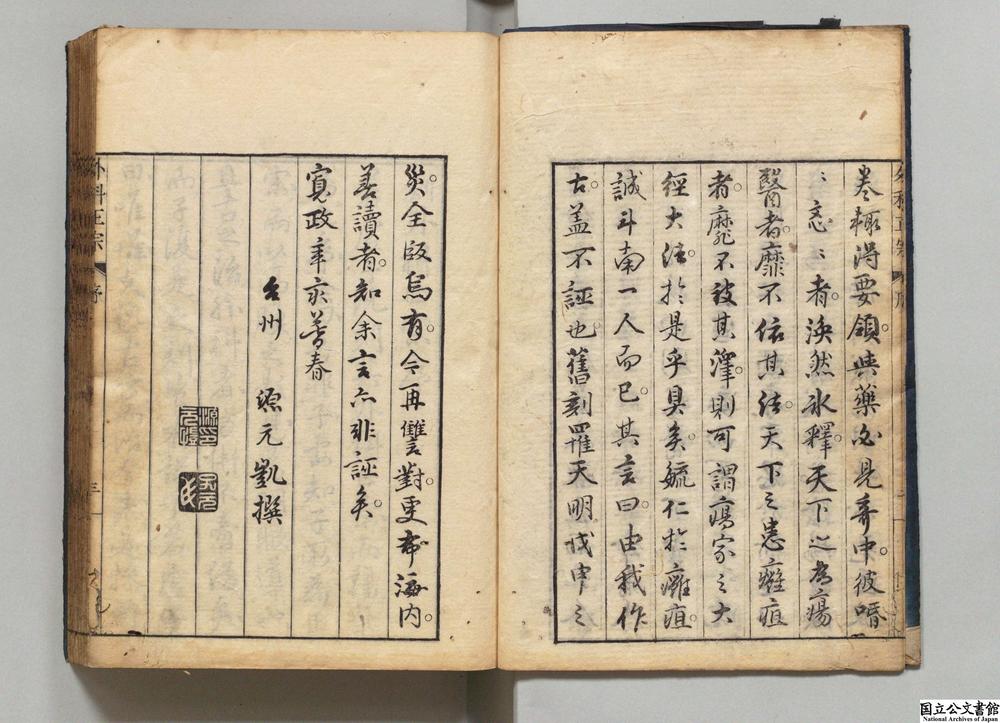 卷輙得要領與藥必見奇中。彼唔
〻忞〻者。渙然氷釋。天下之為瘍
醫者。靡不依其法。天下之患癰疽
者。靡不被其澤。則可謂瘍家之大
經大法。於是乎具矣。毓仁於癰疽。
誠斗南一人而已。其言曰。由我作
古。盖不誣也。舊刻罹天明戊申之
災。全版烏有。今再讐對。更布海内。
善讀者。知余言亦非誣矣。
寛政辛亥首春
台州 源元凱撰
外科正宗 序 三
国立公文書館
National Archives of Japan